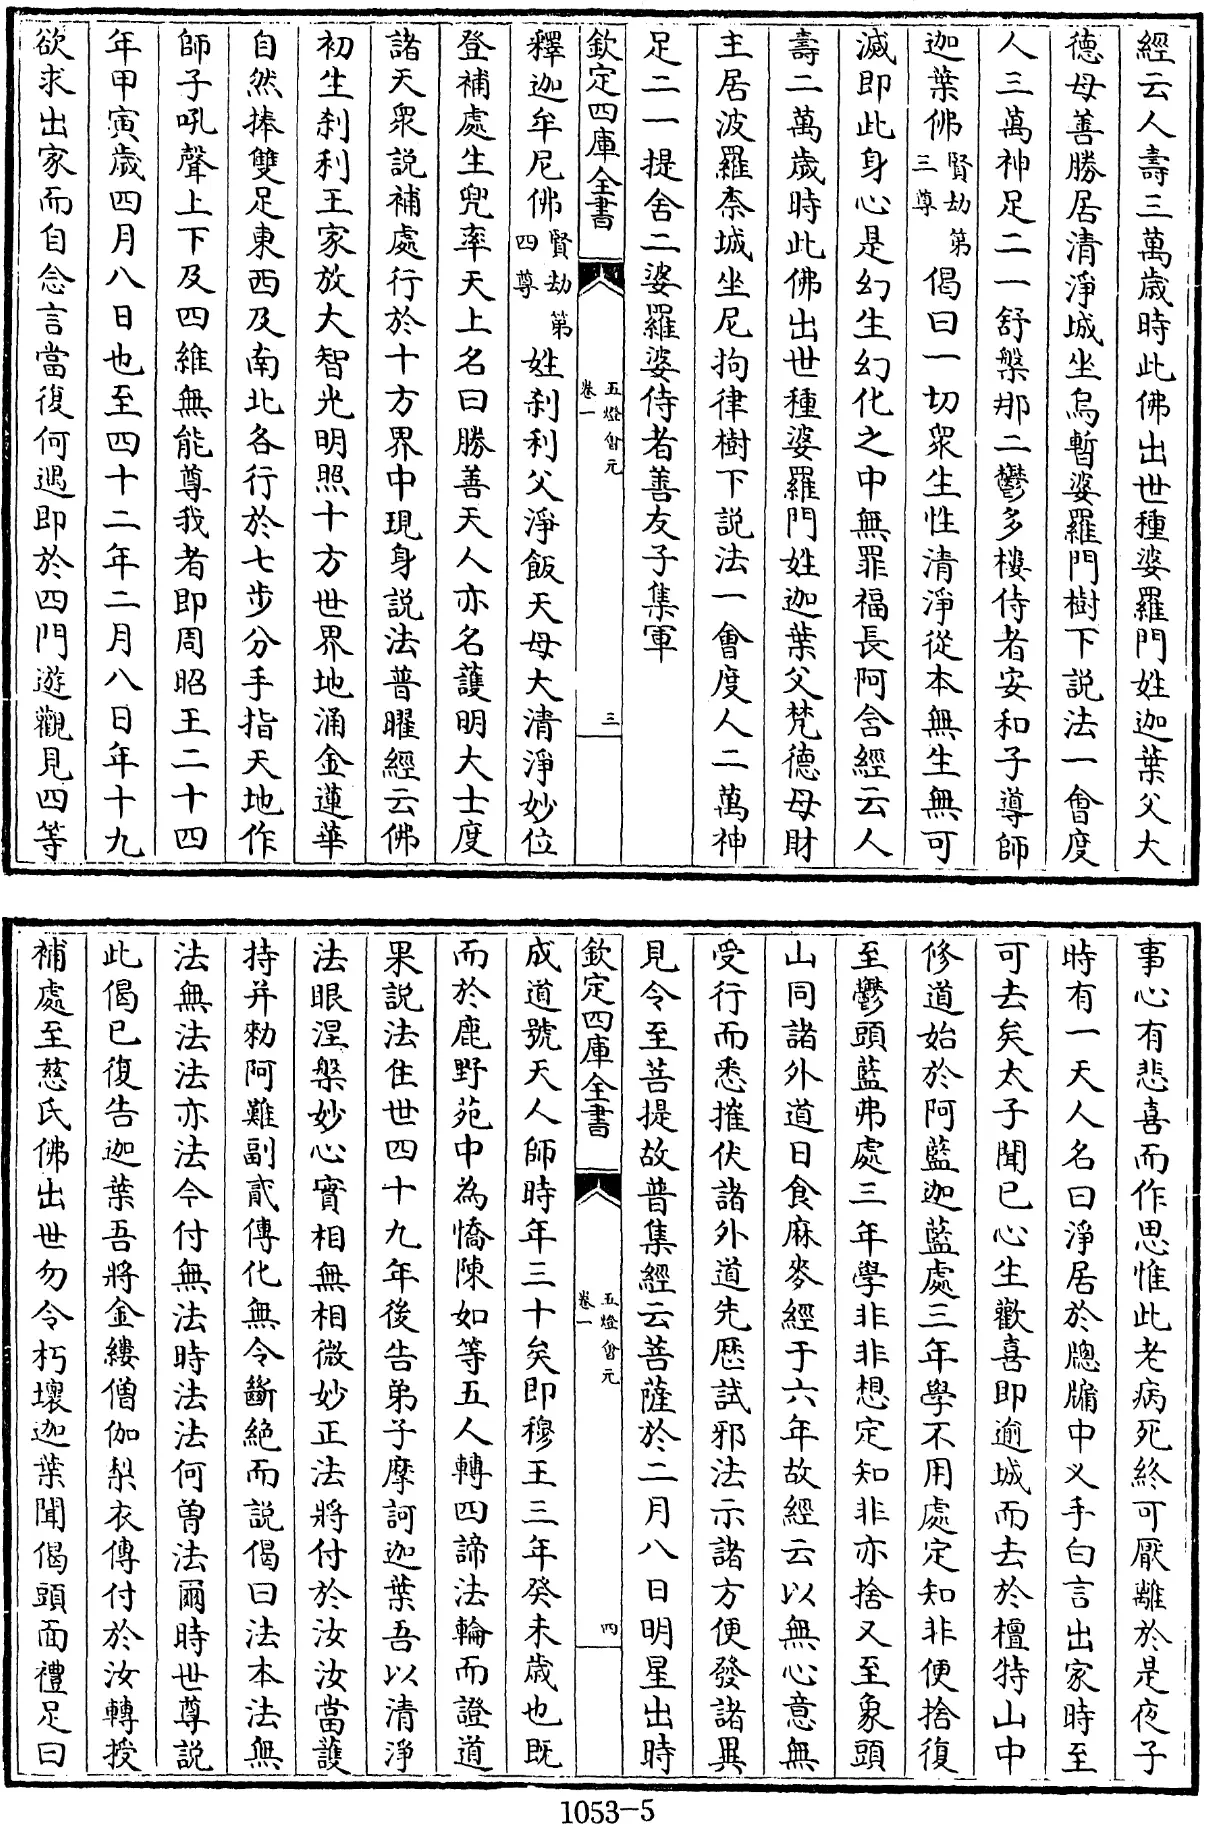 經云人壽三萬歳時此佛出世種婆羅門姓迦葉父大
德母善勝居清淨城坐烏暫婆羅門樹下説法一會度
人三萬神足二一舒槃那二鬱多樓侍者安和子導師
迦葉佛賢劫第三尊偈曰一切衆生性清淨從本無生無可
滅即此身心是幻生幻化之中無罪福長阿含經云人
壽二萬歳時此佛出世種婆羅門姓迦葉父梵德母財
主居波羅柰城坐尼拘律樹下説法一會度人二萬神
足二一提舍二婆羅婆侍者善友子集軍
欽定四庫全書
五燈會元
卷一
三
釋迦牟尼佛賢劫第四尊姓刹利父淨飯天母大清淨妙位
登補處生兜率天上名曰勝善天人亦名護明大士度
諸天衆説補處行於十方界中現身説法普曜經云佛
初生刹利王家放大智光明照十方世界地涌金蓮華
自然捧雙足東西及南北各行於七步分手指天地作
師子吼聲上下及四維無能尊我者即周昭王二十四
年甲寅歳四月八日也至四十二年二月八日年十九
欲求出家而自念言當復何遇即於四門遊觀見四等
事心有悲喜而作思惟此老病死終可厭離於是夜子
時有一天人名曰淨居於牕牖中叉手白言出家時至
可去矣太子聞已心生歡喜即逾城而去於檀特山中
修道始於阿藍迦藍處三年學不用處定知非便捨復
至鬱頭藍弗處三年學非非想定知非亦捨又至象頭
山同諸外道日食麻麥經于六年故經云以無心意無
受行而悉摧伏諸外道先歴試邪法示諸方便發諸異
見令至菩提故普集經云菩薩於二月八日明星出時
欽定四庫全書
五燈會元
卷一
四
成道號天人師時年三十矣即穆王三年癸未歳也既
而於鹿野苑中為憍陳如等五人轉四諦法輪而證道
果説法住世四十九年後告弟子摩訶迦葉吾以清淨
法眼涅槃妙心實相無相微妙正法將付於汝汝當護
持并勑阿難副貳傳化無令斷絶而説偈曰法本法無
法無法法亦法今付無法時法法何曽法爾時世尊説
此偈已復告迦葉吾將金縷僧伽梨衣傳付於汝轉授
補處至慈氏佛出世勿令朽壞迦葉聞偈頭面禮足曰
1053-5